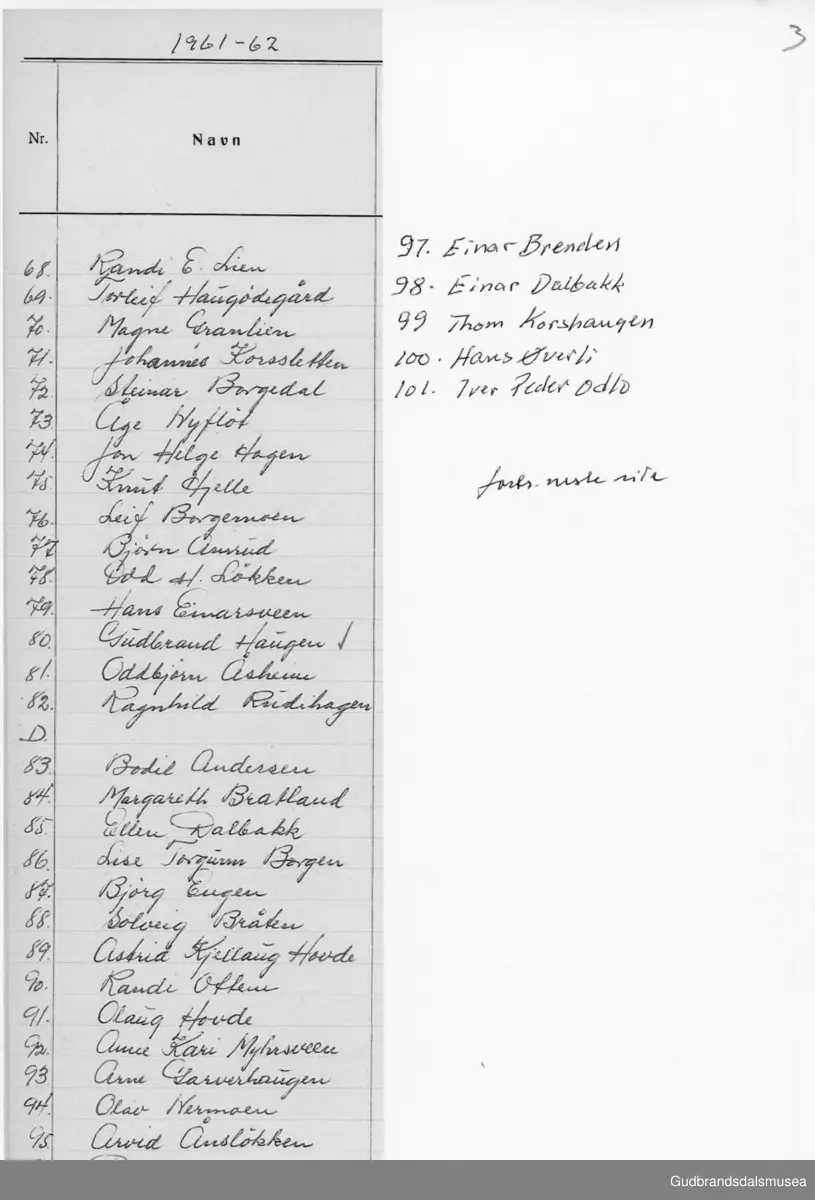 1961-62
3
Nr. Navn
68. Randi E. Lien
69. Torleif Haugödegård
70. Magne Granlien
71. Johannes Korssletten
72. Steinar Borgedal
73. Åge Nyflöt
74. Jon Helge Hagen
75. Knut Hjelle
76. Leif Borgemoen
77. Björn Amrud
78. Odd H. Lökken
79. Hans Einarsveen
80. Gudbrand Haugen
81. Oddbjörn Åsheim
82. Ragnhild Rudihagen
D.
83. Bodil Andersen
84. Margareth Bratland
85. Ellen Dalbakk
86. Lise Torgunn Borgen
87. Björg Engen
88. Solveig Bråten
89. Astrid Kjellaug Hovde
90. Randi Ottem
91. Olaug Hovde
92. Anne Kari Myhrsveen
93. Arne Garverhaugen
94. Olav Nermoen
95. Arvid Ånslökken
97. Einar Brenden
98. Einar Dalbakk
99 Thom Korshaugen
100. Hans Øverli
101. Iver Peder Odlo
forts. neste side
Gudbrandsdalsmusea